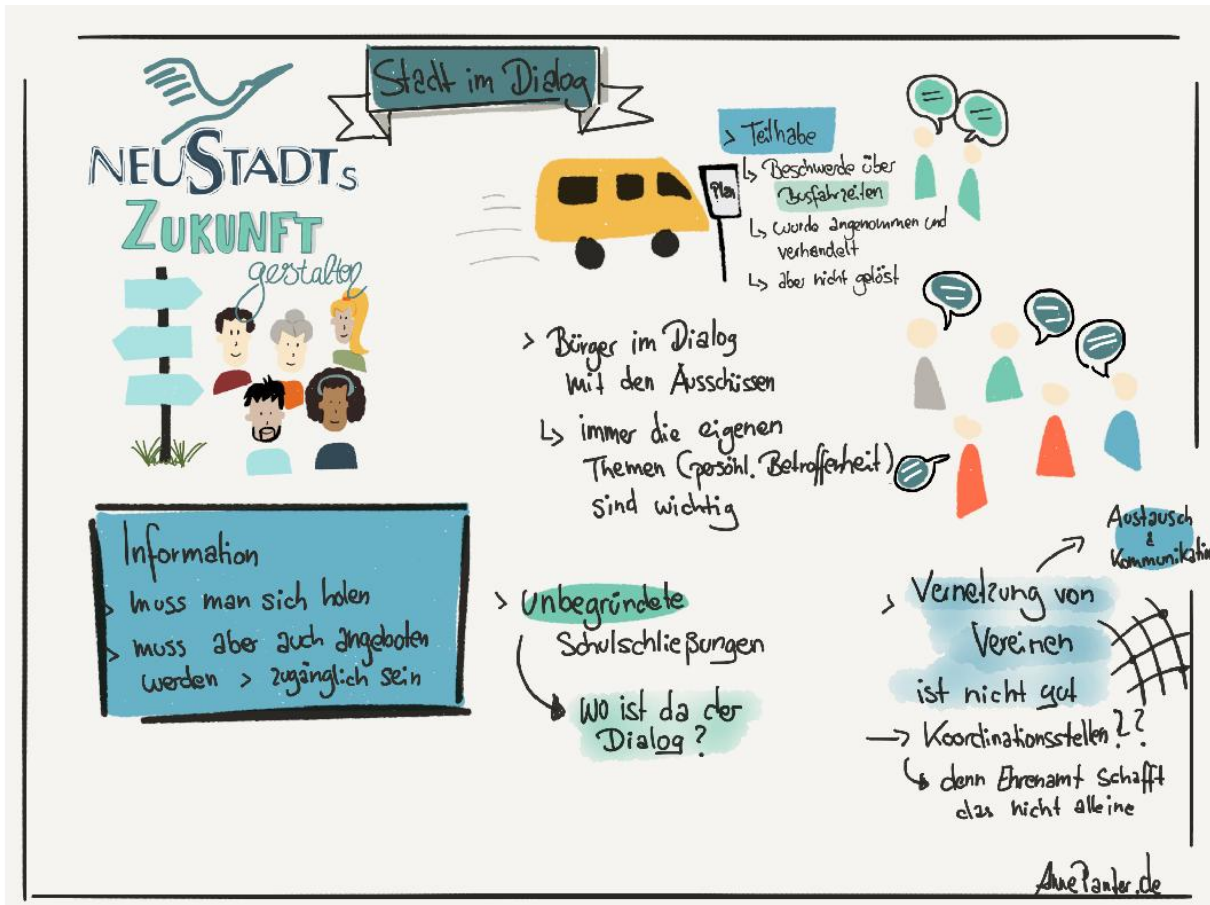 Stadt im Dialog
NEUSTADTs
ZUKUNFT
gestalten
> Teilhabe
↳ Beschwerde über
Busfahrzeiten
↳ wurde angenommen und
verhandelt
↳ aber nicht gelöst
Plan
> Bürger im Dialog
mit den Ausschüssen
↳ immer die eigenen
Themen (persönl. Betroffenheit)
sind wichtig
Information
> muss man sich holen
> muss aber auch angeboten
werden > zugänglich sein
> Unbegründete
Schulschließungen
Wo ist da der
Dialog?
Austausch
&
Kommunikation
> Vernetzung von
Vereinen
ist nicht gut
→ Koordinationsstellen??
↳ denn Ehrenamt schafft
das nicht alleine
AnnePanter.de